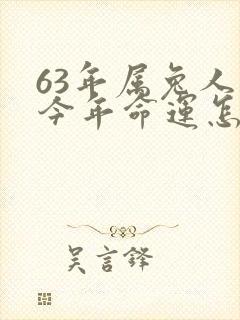 63年属兔人
今年命运怎
吴言铎